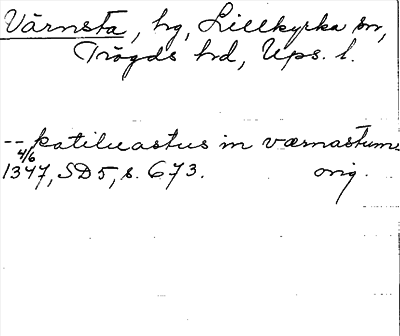 Värnsta, hg, Lillkyrka sn,
Trögds hd, Ups. l.
-- katilluastus in wærnastum
4/6
1347, SD5, s. 673. orig.